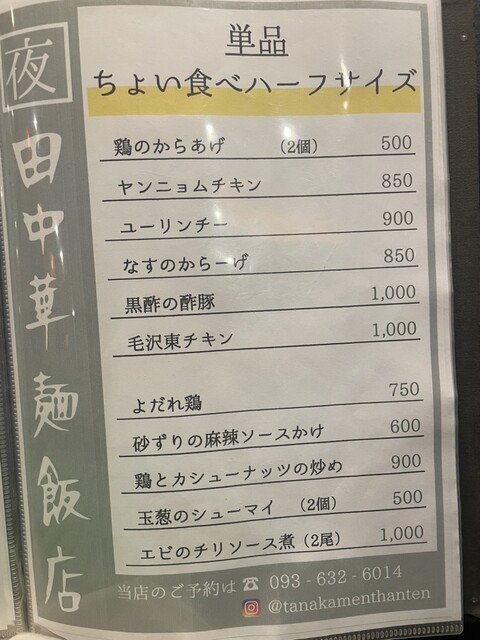 夜
田中華麺飯店
単品
ちょい食べハーフサイズ
鶏のからあげ (2個) 500
ヤンニョムチキン 850
ユーリンチー 900
なすのからーげ 850
黒酢の酢豚 1,000
毛沢東チキン 1,000
よだれ鶏 750
砂ずりの麻辣ソースかけ 600
鶏とカシューナッツの炒め 900
玉葱のシューマイ (2個) 500
エビのチリソース煮 (2尾) 1,000
当店のご予約は ☎ 093-632-6014
@tanakamenthanten